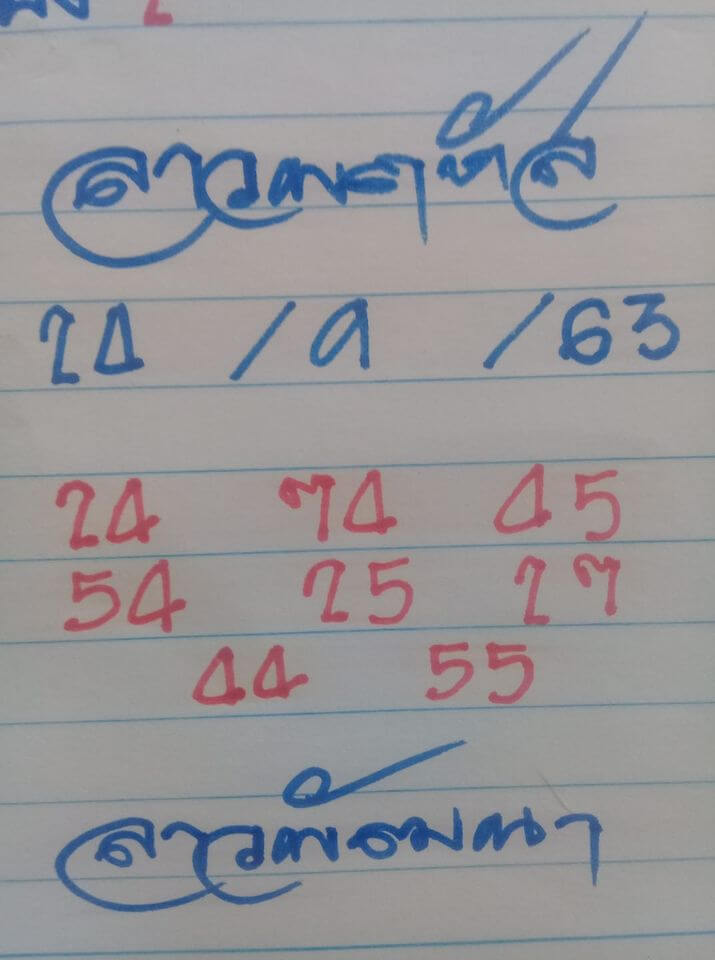 สาวพฤหัส
24 / 9 / 63
24 74 45
54 25 27
44 55
สาวพัฒนา